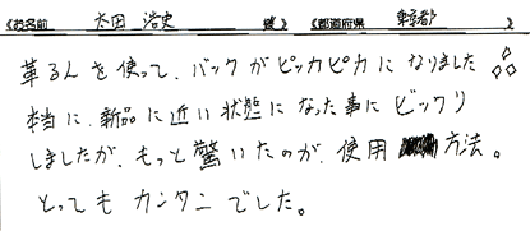 《お名前 太田 浩史 様》 《都道府県 東京都 》
革るんを使って、バックがピッカピカになりました
本当に、新品に近い状態になった事にビックリ
しましたが、もっと驚いたのが、使用方法。
とってもカンタンでした。